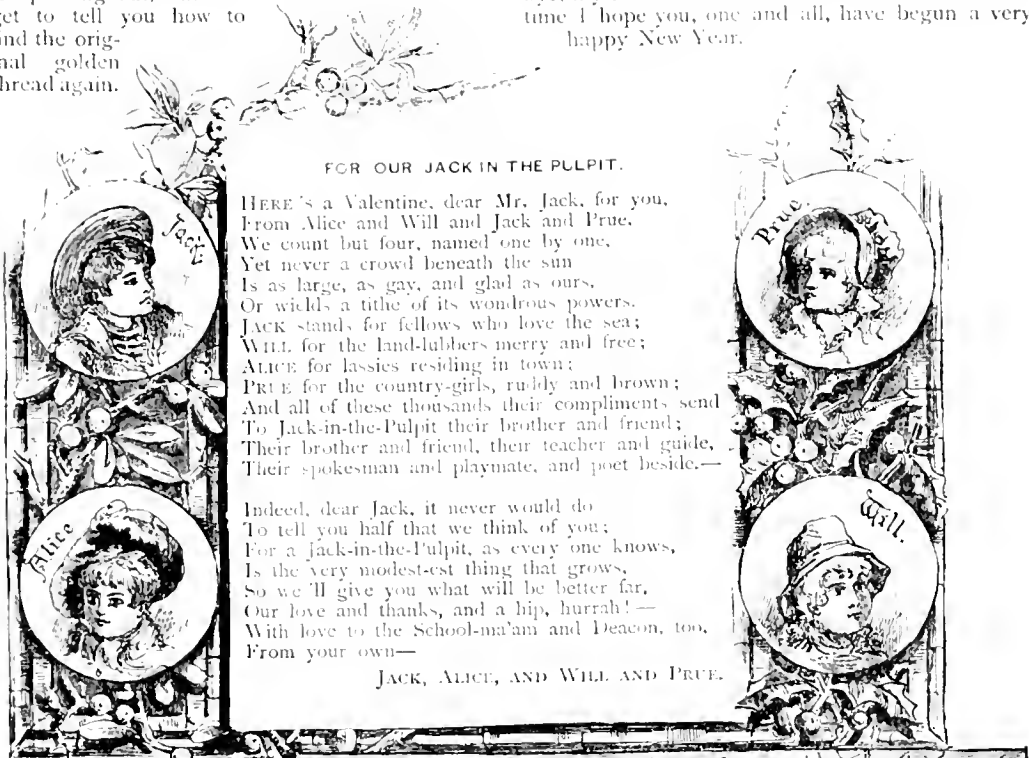 get to tell you how to
find the orig-
nal golden
thread again.
time I hope you, one and all, have begun a very
happy New Year.
FOR OUR JACK IN THE PULPIT.
HERE 's a Valentine, dear Mr. Jack, for you,
From Alice and Will and Jack and Prue.
We count but four, named one by one,
Yet never a crowd beneath the sun
Is as large, as gay, and glad as ours,
Or wields a tithe of its wondrous powers.
JACK stands for fellows who love the sea;
WILL for the land-lubbers merry and free;
ALICE for lassies residing in town;
PRUE for the country-girls, ruddy and brown;
And all of these thousands their compliments send
To Jack-in-the-Pulpit their brother and friend;
Their brother and friend, their teacher and guide,
Their spokesman and playmate, and poet beside.—
Indeed, dear Jack, it never would do
To tell you half that we think of you;
For a Jack-in-the-Pulpit, as every one knows,
Is the very modest-est thing that grows,
So we 'll give you what will be better far,
Our love and thanks, and a hip, hurrah!—
With love to the School-ma'am and Deacon, too,
From your own—
JACK, ALICE, AND WILL AND PRUE.
Jack
Alice
Prue.
Will.